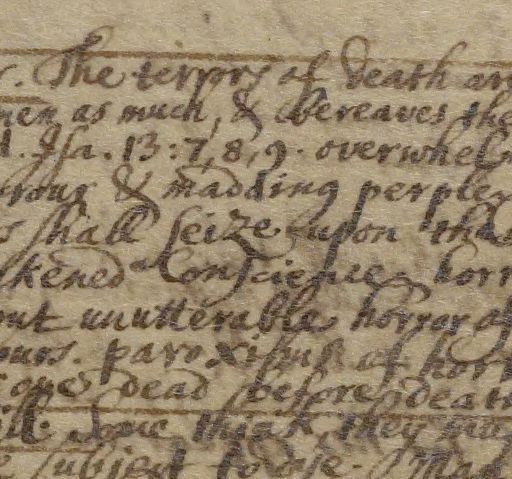 The terrors of death are
men as much, & bereaves the
Isa. 13:7,8,9. overwhel
rour & madding perplex
shall seize upon the
kened Conscience, horr
out unutterable horror of
ours. paroxisms of horr
one dead before death
think they
subject to